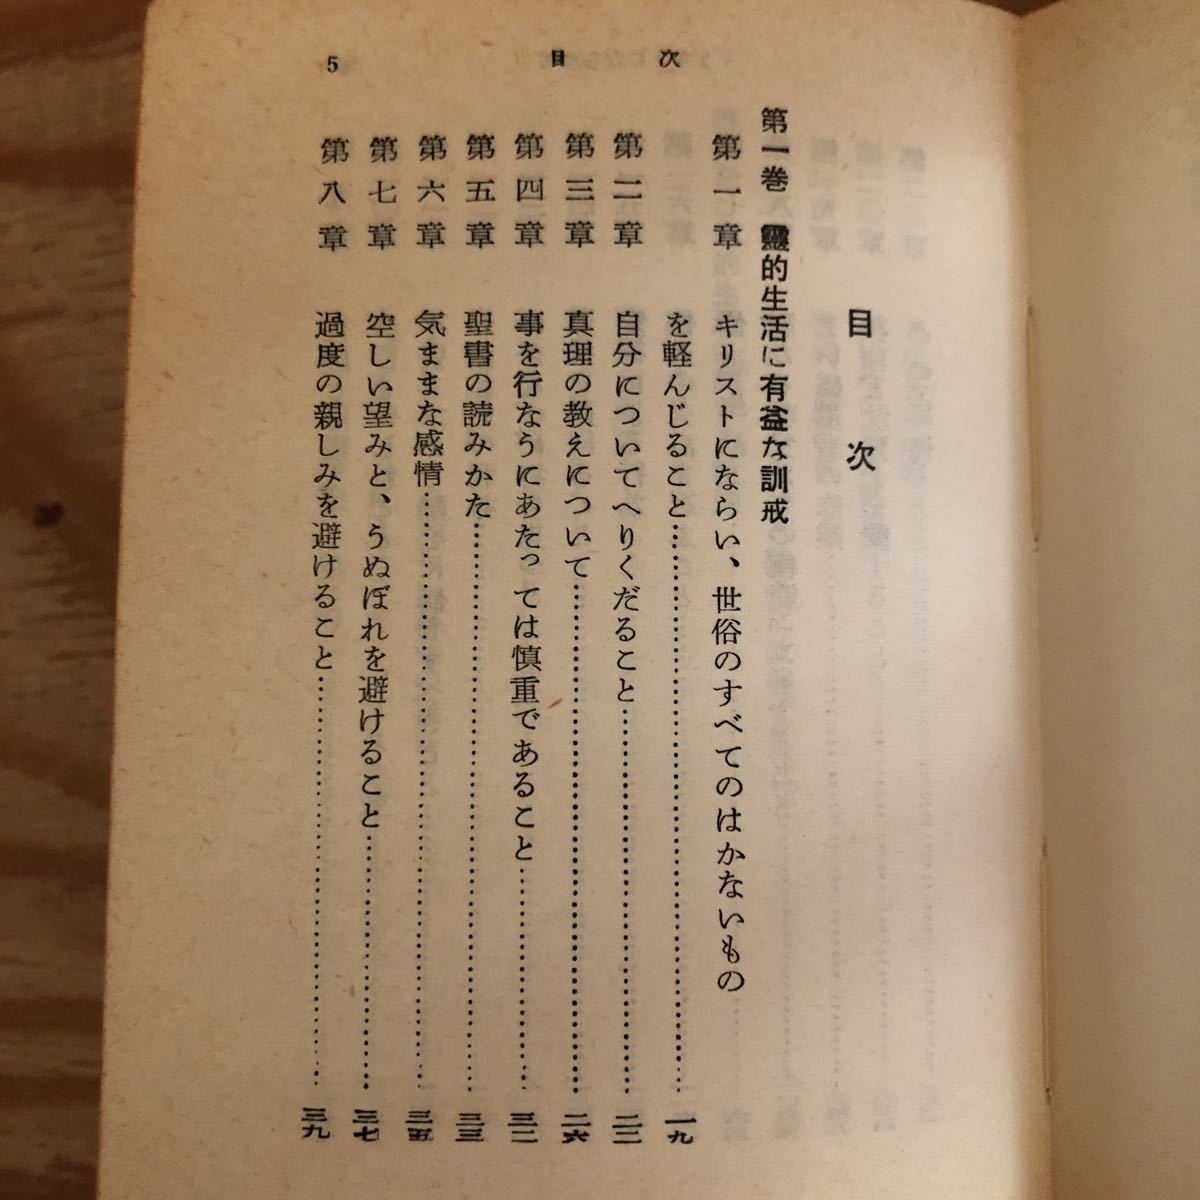 目次 5
目次
第一巻 靈的生活に有益な訓戒
第一章 キリストにならい、世俗のすべてのはかないもの
を軽んじること…………一九
第二章 自分についてへりくだること…………二二
第三章 真理の教えについて…………二六
第四章 事を行なうにあたっては慎重であること…………三二
第五章 聖書の読みかた…………三三
第六章 気ままな感情…………三五
第七章 空しい望みと、うぬぼれを避けること…………三七
第八章 過度の親しみを避けること…………三九